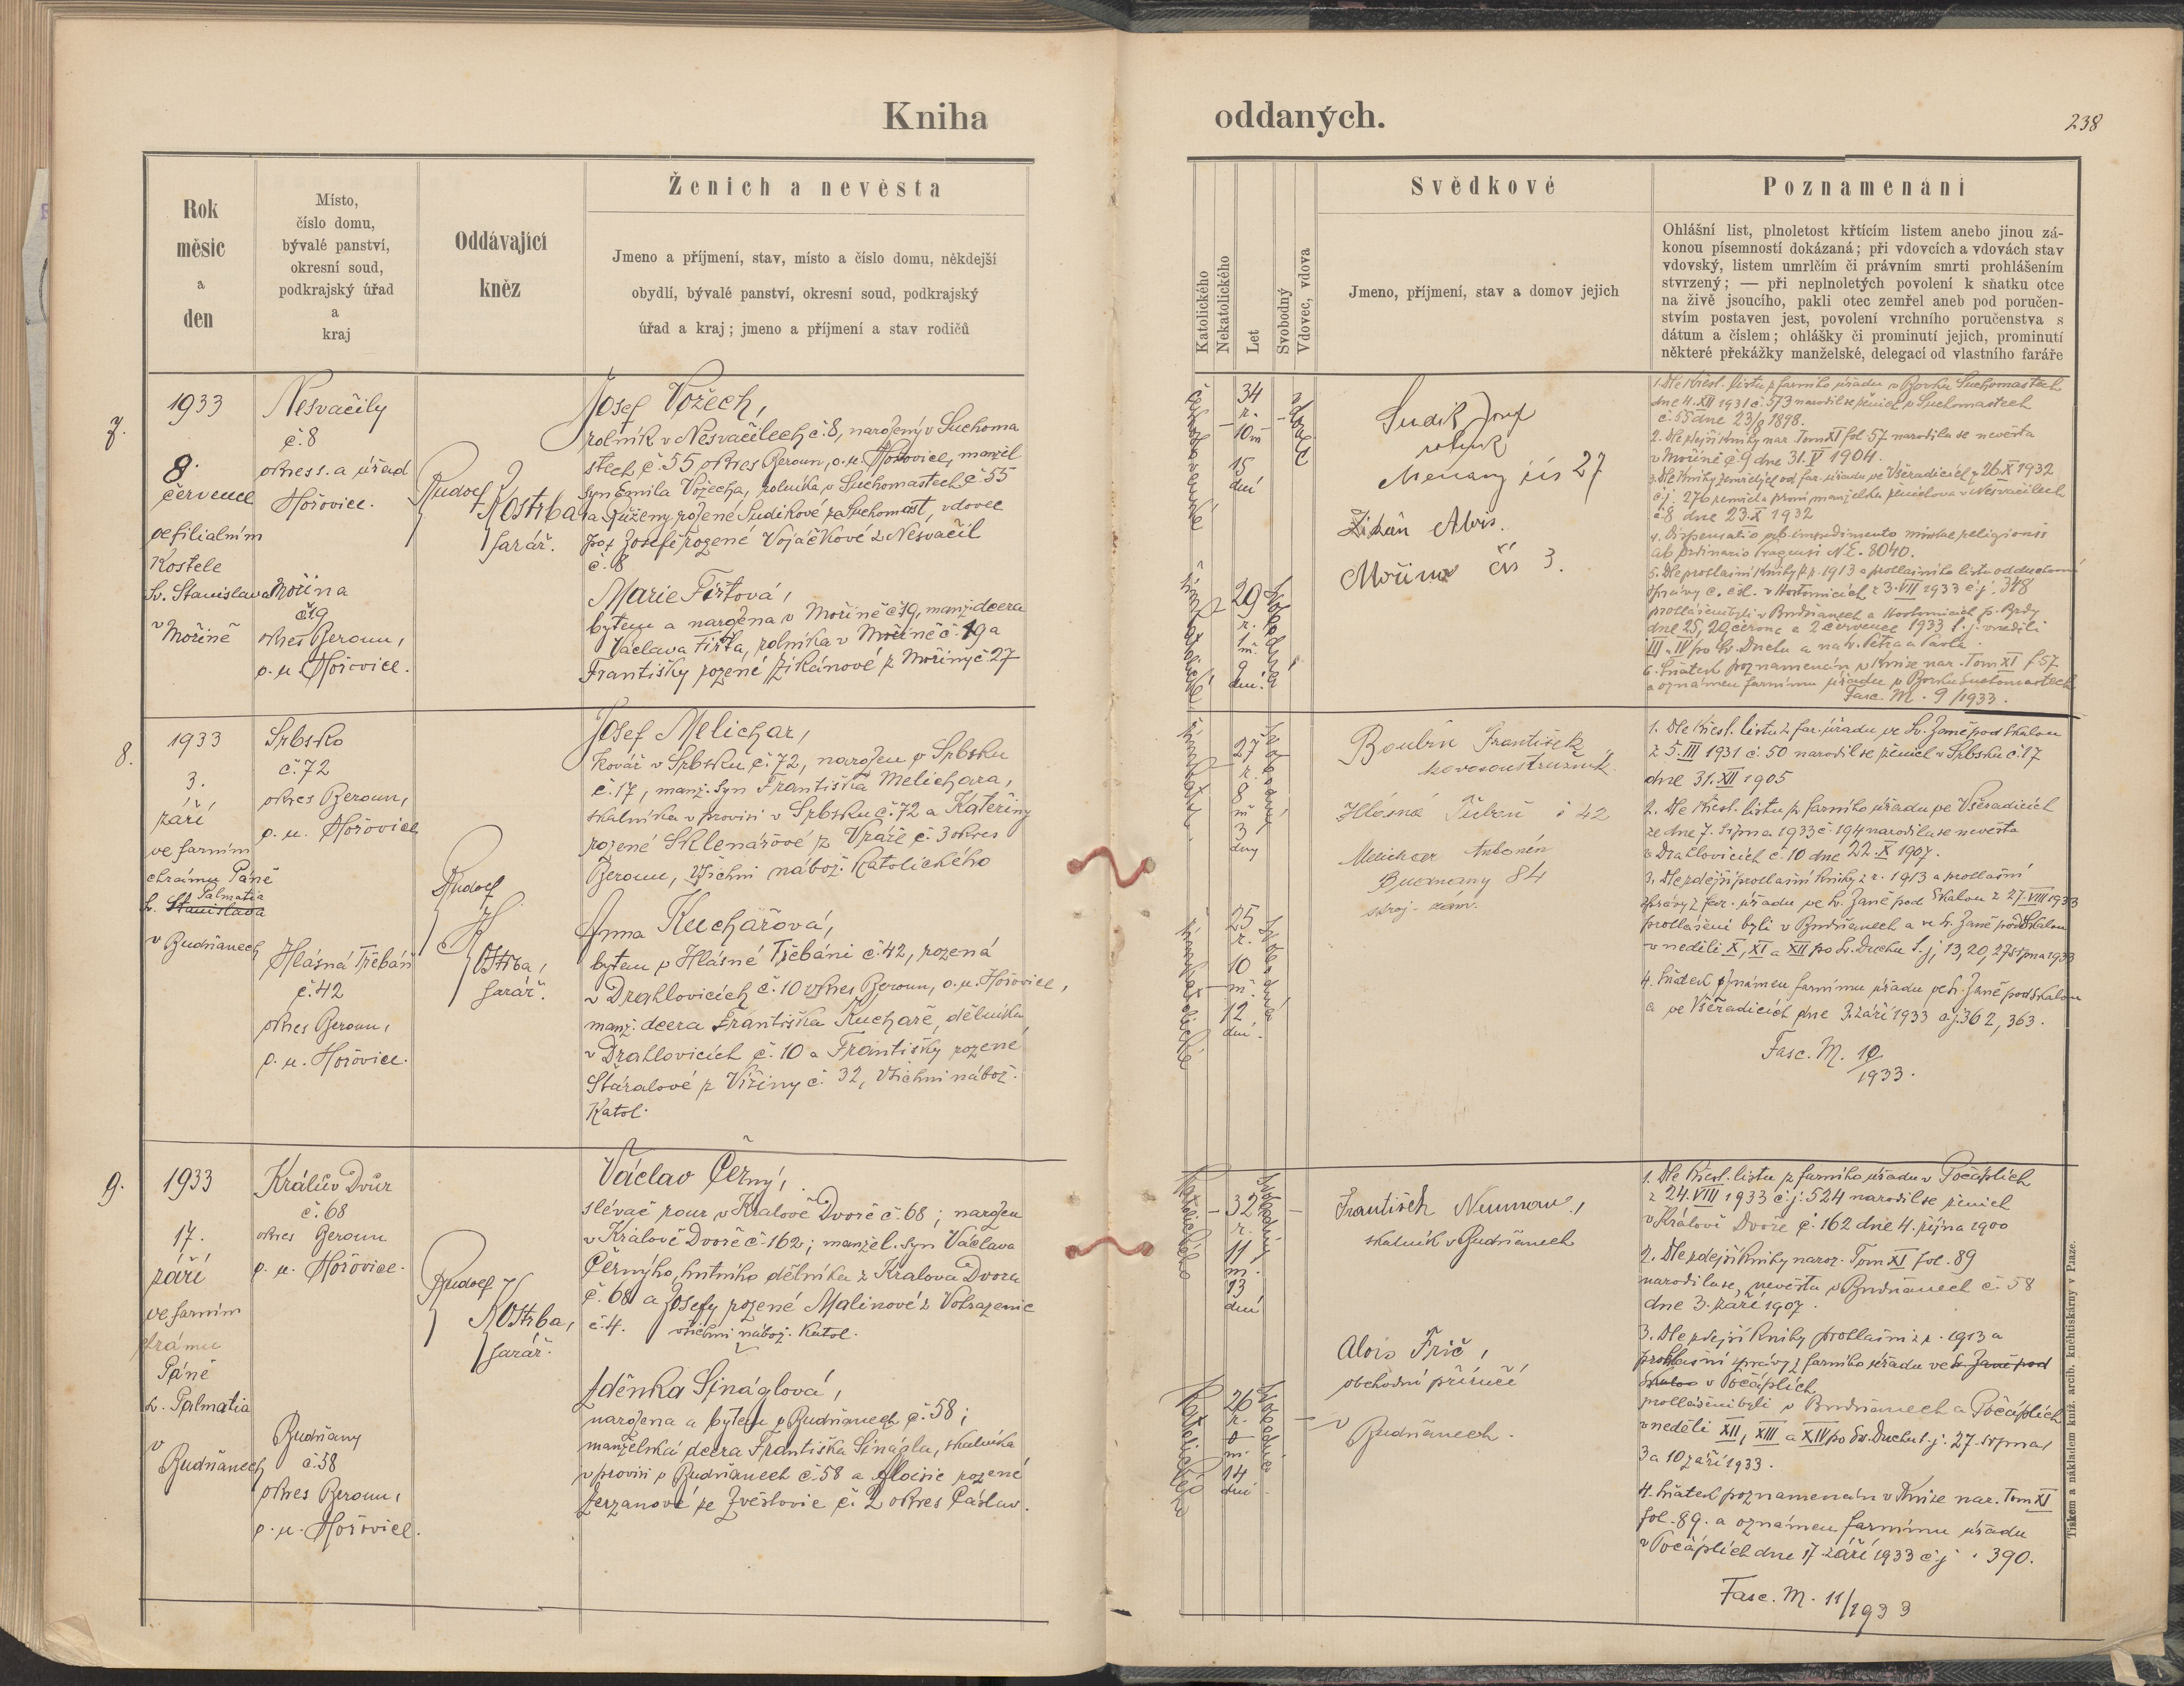 Kniha
Rok
měsíc
a
den
Místo,
číslo domu,
bývalé panství,
okresní soud,
podkrajský úřad
a
kraj
Oddávající
kněz
Ženich a nevěsta
Jmeno a příjmení, stav, místo a číslo domu, někdejší
obydlí, bývalé panství, okresní soud, podkrajský
úřad a kraj; jmeno a příjmení a stav rodičů
7.
1933
8.
července
ve filialním
Kostele
Sv. Stanislava
v Mořině
Nesvačily
č. 8
okres s. a úřad
Hořovice.
Mořina
č. 19
okres Beroun,
o. u. Hořovice.
Rudolf
Kostrba
farář.
Josef Vožech,
rolník v Nesvačilech č. 8, narozený v Suchoma
stech č. 55 okres Beroun, o. u. Hořovice, manžel
syn Emila Vožecha, rolníka v Suchomastech č. 55
a Růženy rozené Sudikové ze Suchomast, vdovec
po † Josefě rozené Vojáčkové z Nesvačil
č. 8
Marie Fiřtová,
bytem a narozena v Mořině č. 19, manž. dcera
Václava Fiřta, rolníka v Mořině č. 19 a
Františky rozené Zikánové z Mořiny č. 27
8.
1933
3.
září
ve farním
chrámu Páně
Palmatia
Sv. Stanislava
v Budňanech
Srbsko
č. 72
okres Beroun,
o. u. Hořovice
Hlásná Třebáň
č. 42
okres Beroun,
o. u. Hořovice.
Rudolf
Kostrba,
farář.
Josef Melichar,
kovář v Srbsku č. 72, narozen v Srbsku
č. 17, manž. syn Františka Melichara,
skalníka v provisi v Srbsku č. 72 a Kateřiny
rozené Sklenářové z Vráže č. 3 okres
Beroun, všichni nábož. katolického
Anna Kuchařová,
bytem v Hlásné Třebáni č. 42, rozená
v Drahlovicích č. 10 okres Beroun, o. u. Hořovice,
manž. dcera Františka Kuchaře, dělníka
v Drahlovicích č. 10 a Františky rozené
Stáralové z Vižiny č. 32, všichni nábož.
Katol.
9.
1933
17.
září
ve farním
chrámu
Páně
sv. Palmatia
v
Budňanech
Králův Dvůr
č. 68
okres Beroun
o. u. Hořovice.
Budňany
č. 58
okres Beroun,
o. u. Hořovice.
Rudolf
Kostrba,
farář.
Václav Černý,
slévač rour v Králově Dvoře č. 68; narozen
v Králově Dvoře č. 162; manžel. syn Václava
Černýho, hutního dělníka z Králova Dvora
č. 68 a Josefy rozené Malinové z Votrazenic
č. 4. všichni nábož. Katol.
Zděnka Sináglová,
narozena a bytem v Budňanech č. 58;
manželská dcera Františka Sinágla, skalníka
v provisi v Budňanech č. 58 a Aloisie rozené
Zerzanové ze Zvěstovic č. 2 okres Čáslav.
oddaných.
238
Katolického
Nekatolického
Let
Svobodný
Vdovec, vdova
Svědkové
Jmeno, příjmení, stav a domov jejich
Poznamenání
Ohlášní list, plnoletost křtícím listem anebo jinou zá-
konou písemností dokázaná; při vdovcích a vdovách stav
vdovský, listem umrlčím či právním smrti prohlášením
stvrzený; — při neplnoletých povolení k sňatku otce
na živě jsoucího, pakli otec zemřel aneb pod poručen-
stvím postaven jest, povolení vrchního poručenstva s
dátum a číslem; ohlášky či prominutí jejich, prominutí
některé překážky manželské, delegací od vlastního faráře
34
r.
10 m
15
dní
vdovec
Sudik Josef
rolník
Měňany čís 27
Zikán Alois.
Mořina čís 3.
29
r.
1 m.
9
dní.
svobodná
1. Dle křest. listu z farního úřadu v Borku Suchomastech
dne 4. XII 1931 č. 573 narodil se ženich v Suchomastech
č. 55 dne 23/8 1898.
2. Dle zdejší knihy nar. Tom XI fol. 57 narodila se nevěsta
v Mořině č. 9 dne 31. V 1904.
3. Dle knihy zemřelých od far. úřadu ve Všeradicích z 26. X 1932
č. j. 276 zemřela první manželka ženichova v Nesvačilech
č. 8 dne 23. X 1932
4. Dispensatio ab impedimento mixtae religionis
ab Ordinario Pragensi N. E. 8040.
5. Dle prohlašní knihy z r. 1913 a prohlašního listu od duchovní
správy c. čsl. v Hostomicích z 3. VII 1933 č. j. 348
prohlášeni byli v Budňanech a Hostomicích p. Brdy
dne 25, 29 června a 2 července 1933 t. j. v neděli
III. a IV po sv. Duchu a na sv. Petra a Pavla.
6. Sňatek poznamenán v knize nar. Tom XI f. 57
a oznámen farnímu úřadu v Borku Suchomastech
Fasc. M. 9/1933.
27
r.
8
m
3
dny
svobodný
Boubín František
kovosoustružník
Hlásná Třebaň č 42
Melichar Antonín
Budňany 84
stroj. zám.
25
r.
10
m.
12
dní.
svobodná
1. Dle křest. listu z far. úřadu ve Sv. Janě pod Skalou
z 5. III 1931 č. 50 narodil se ženich v Srbsku č. 17
dne 31. XII 1905
2. Dle křest. listu z farního úřadu ve Všeradicích
ze dne 7. srpna 1933 č. 194 narodila se nevěsta
v Drahlovicích č. 10 dne 22. X 1907.
3. Dle zdejší prohlašní knihy z r. 1913 a prohlašní
zprávy z far. úřadu ve Sv. Janě pod Skalou z 27. VIII 1933
prohlášeni byli v Budňanech a ve Sv. Janě pod Skalou
v neděli X, XI a XII po Sv. Duchu t. j. 13, 20, 27 srpna 1933
4. Sňatek oznámen farnímu úřadu ve Sv. Janě pod Skalou
a ve Všeradicích dne 3. září 1933 č. j. 362, 363.
Fasc. M. 10/1933.
katolického
32
r.
11
m.
13
dní
svobodný
František Neuman,
skalník v Budňanech
Alois Frič,
obchodní příručí
v
Budňanech.
katolického
26
r.
0
m.
14
dní
svobodná
1. Dle křest. listu z farního úřadu v Počáplích
z 24. VIII 1933 č. j. 524 narodil se ženich
v Králově Dvoře č. 162 dne 4. října 1900
2. Dle zdejší knihy naroz. Tom XI fol. 89
narodila se nevěsta v Budňanech č. 58
dne 3. září 1907.
3. Dle zdejší knihy prohlašní z r. 1913 a
prohlašní zprávy z farního úřadu ve Sv. Janě pod
Skalou v Počáplích
prohlášeni byli v Budňanech a Počáplích
v neděli XII, XIII a XIV po Sv. Duchu t. j. 27. srpna,
3 a 10 září 1933.
4. Sňatek poznamenán v knize nar. Tom XI
fol. 89. a oznámen farnímu úřadu
v Počáplích dne 17. září 1933 č. j. 390.
Fasc. M. 11/1933
Tiskem a nákladem kníž. arcib. knihtiskárny v Praze.